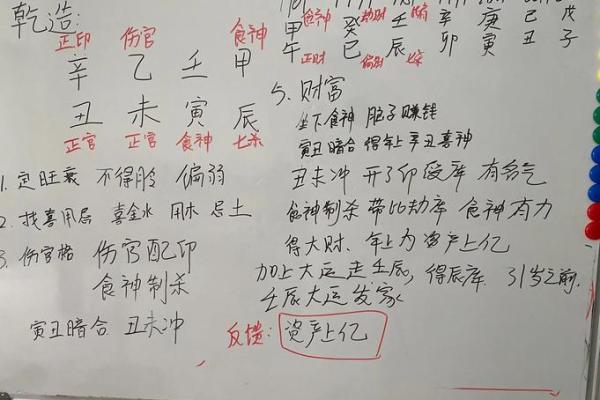 乾造:
正印 伤官 食神
辛 乙 壬 甲
丑 未 寅 辰
正官 正官 食神 七杀
1. 定旺衰 不得令 偏弱
2. 找喜用忌 喜金水 用木 忌土
3. 伤官格 伤官配印
食神制杀
寅丑暗合 丑未冲
食神 劫财
甲 癸 壬 辛 庚 己 戊
午 巳 辰 卯 寅 丑 子
正财 偏财 七杀
5. 财富
坐下食神 脑子赚钱
寅丑暗合 得年上辛丑喜神
丑未冲 开了印绶库 有名气
食神制杀 带比劫库 食神有力
得大财、年上为资产上亿
加上大运走壬辰,得辰库. 31岁之前.
壬辰大运发家
反馈: 资产上亿